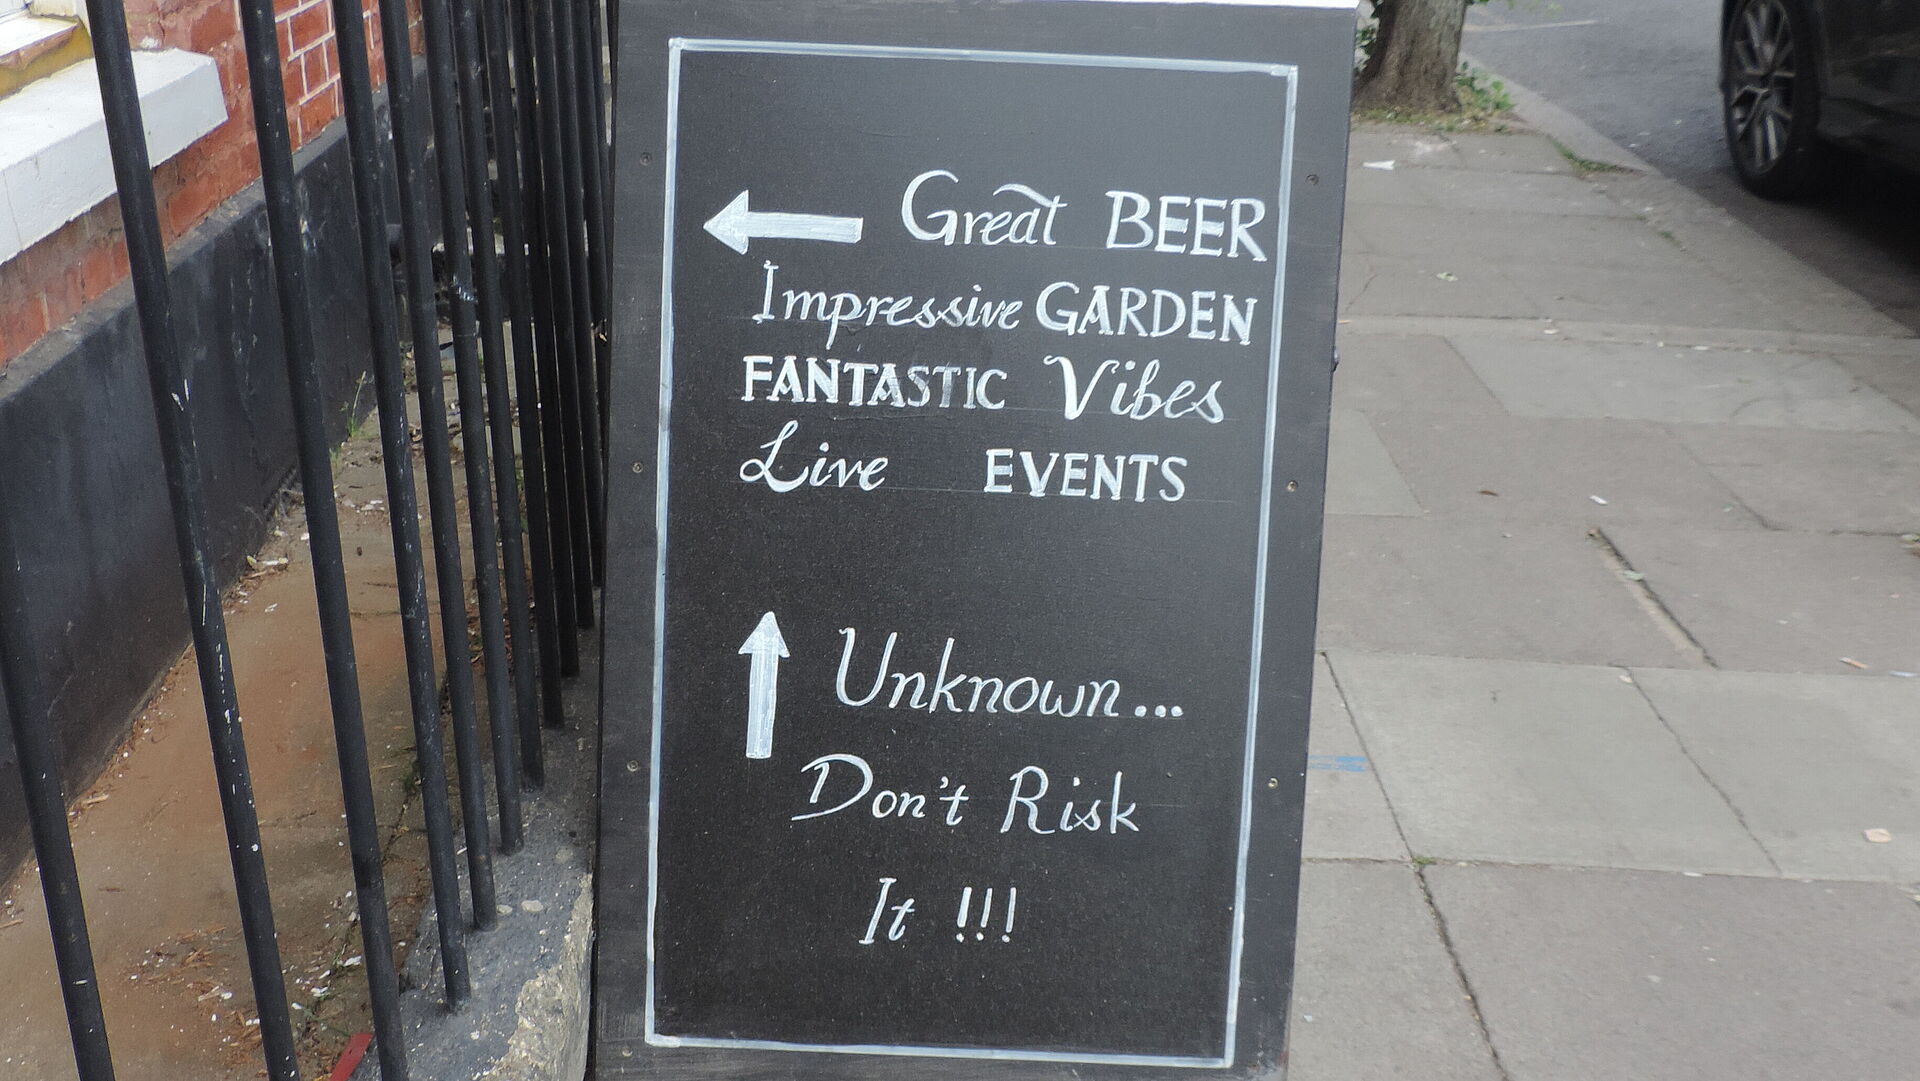 Great BEER
Impressive GARDEN
FANTASTIC Vibes
Live EVENTS
Unknown...
Don't Risk
It !!!